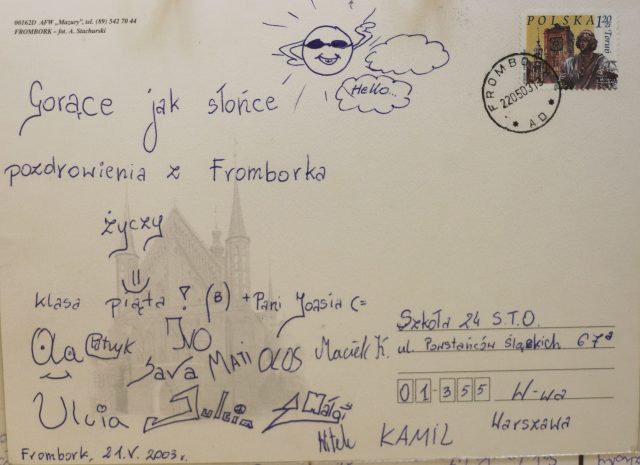 00162D AFW „Mazury”, tel. (89) 542 70 44
FROMBORK – fot. A. Stachurski
POLSKA 1,20
Toruń
FROMBORK
220503
AD
Hello...
Gorące jak słońce
pozdrowienia z Fromborka
życzy
klasa piąta! (B) + Pani Joasia (=
Ola Patryk IVO
Sara MATI OLOS Maciek K.
Ulcia Julcia Małgi
Mitek KAMIL
Frombork, 21.V.2003r.
Szkoła 24 S.T.O.
ul. Powstańców Śląskich 67a
01-355 W-wa
Warszawa